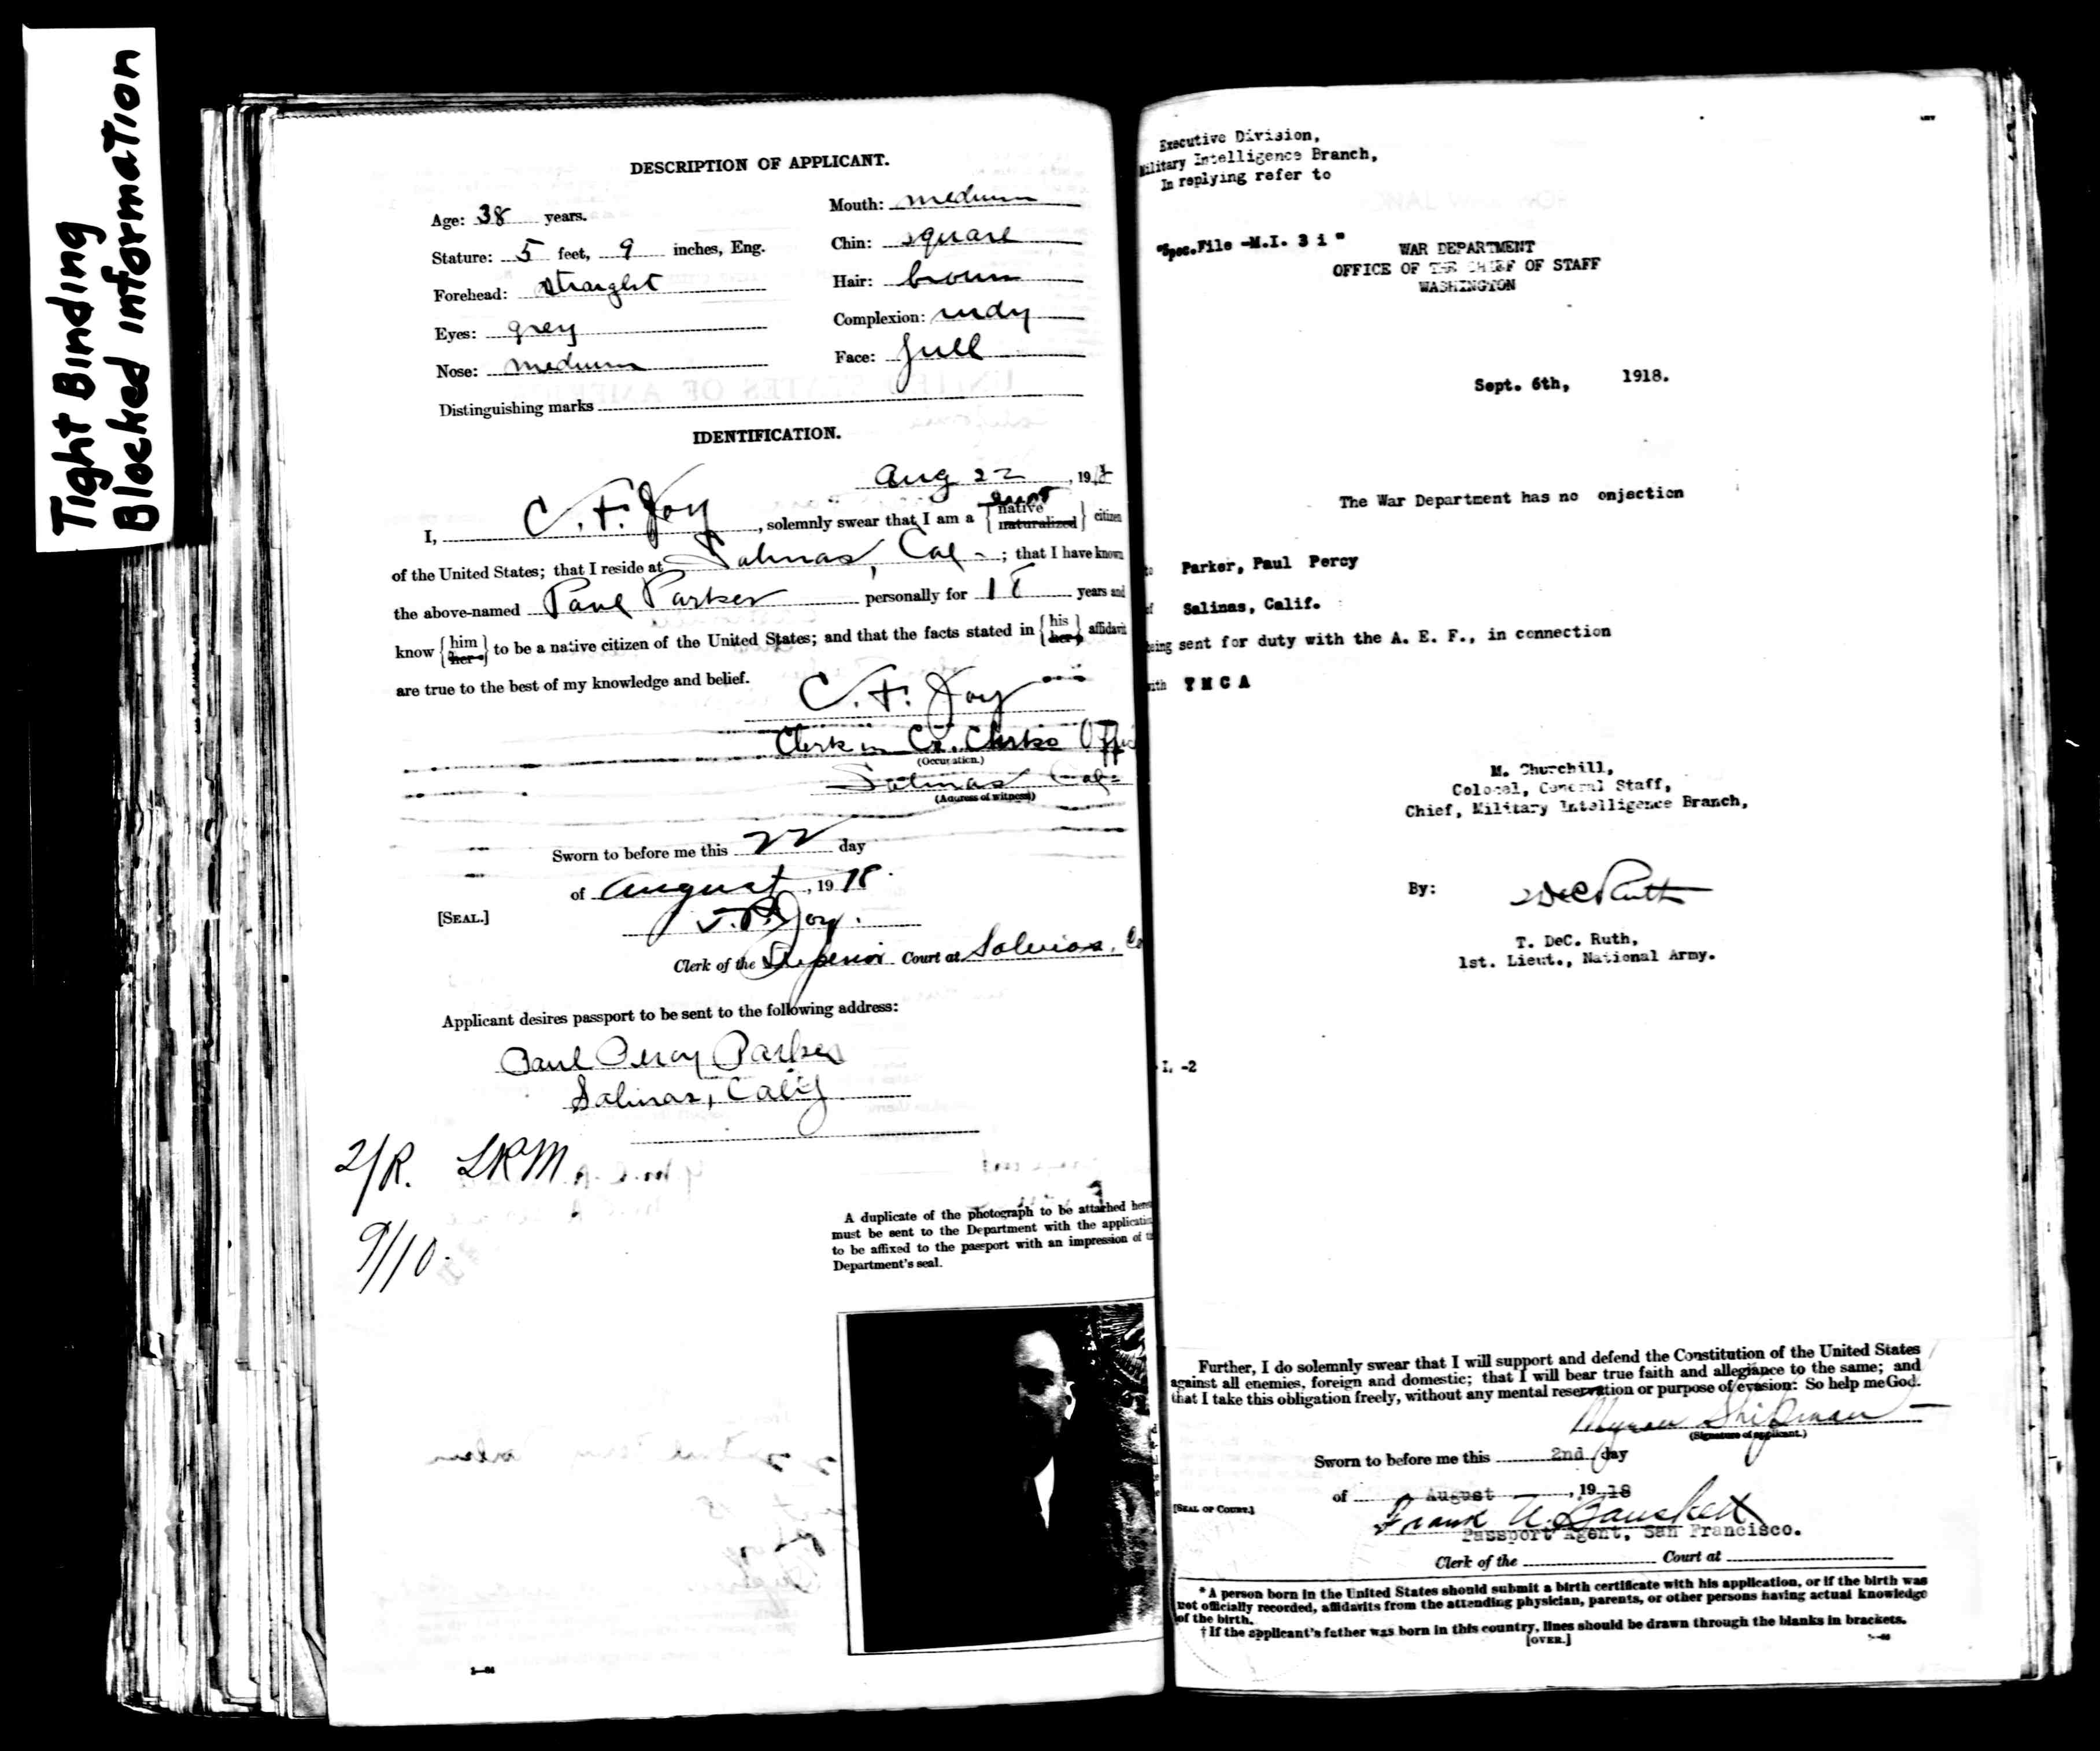 Tight Binding
Blocked information
DESCRIPTION OF APPLICANT.
Age: 38 years.
Stature: 5 feet, 9 inches, Eng.
Forehead: straight
Eyes: grey
Nose: medium
Mouth: medium
Chin: square
Hair: brown
Complexion: rudy
Face: full
Distinguishing marks
IDENTIFICATION.
Aug 22, 191
I, C. F. Joy, solemnly swear that I am a {native naturalized} citizen
of the United States; that I reside at Salinas, Cal; that I have known
the above-named Paul Parker personally for years and
know {him her} to be a native citizen of the United States; and that the facts stated in {his her} affidavit
are true to the best of my knowledge and belief.
C. F. Joy
Clerk in Co. Clerks Offic
(Occupation.)
Salinas Cal
(Address of witness)
Sworn to before me this 22 day
of August, 1918.
[SEAL.]
Joy.
Clerk of the Superior Court at Salinas, Ca
Applicant desires passport to be sent to the following address:
Paul Percy Parker
Salinas, Calif
2/R. LRM
9/10.
A duplicate of the photograph to be attached here
must be sent to the Department with the applicatio
to be affixed to the passport with an impression of t
Department's seal.
Executive Division,
Military Intelligence Branch,
In replying refer to
"Spec.File -M.I. 3 i "
WAR DEPARTMENT
OFFICE OF THE CHIEF OF STAFF
WASHINGTON
Sept. 6th, 1918.
The War Department has no onjection
to Parker, Paul Percy
of Salinas, Calif.
being sent for duty with the A. E. F., in connection
with Y M C A
M. Churchill,
Colonel, General Staff,
Chief, Military Intelligence Branch,
By: TDeCRuth
T. DeC. Ruth,
1st. Lieut., National Army.
I. -2
Further, I do solemnly swear that I will support and defend the Constitution of the United States
against all enemies, foreign and domestic; that I will bear true faith and allegiance to the same; and
that I take this obligation freely, without any mental reservation or purpose of evasion: So help me God.
Shipman
(Signature of applicant.)
Sworn to before me this 2nd day
of August, 1918
[SEAL OF COURT.]
Frank
Passport Agent, San Francisco.
Clerk of the Court at
* A person born in the United States should submit a birth certificate with his application, or if the birth was
not officially recorded, affidavits from the attending physician, parents, or other persons having actual knowledge
of the birth.
† If the applicant's father was born in this country, lines should be drawn through the blanks in brackets.
[OVER.]